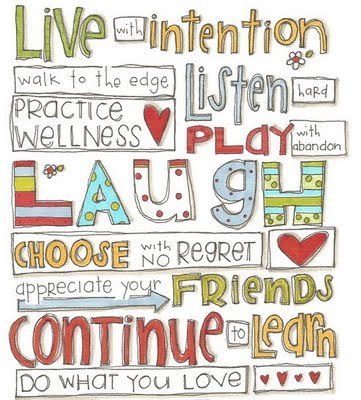 LIVE with intention
walk to the edge
Listen hard
PRACTICE WELLNESS
PLAY with abandon
LAUgH
CHOOSE with NO REGRET
appreciate your FRIENDS
CONTINUE to LEARN
DO WHAT YOU LOVE